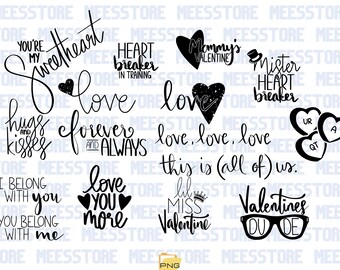 MEESSTORE MEESSTORE MEESSTORE
YOU'RE
MY
Sweetheart
HEART
breaker
IN TRAINING
Mommy's
VALENTINE
Mister
HEART
breaker
love
love
UR
A
QT
hugs
AND
kisses
forever
AND ALWAYS
love, love, love
this is (all of) us.
I BELONG
with you
YOU BELONG
with me
love
YOU
more
lil
MISS
Valentine
Valentines
DUDE
PNG